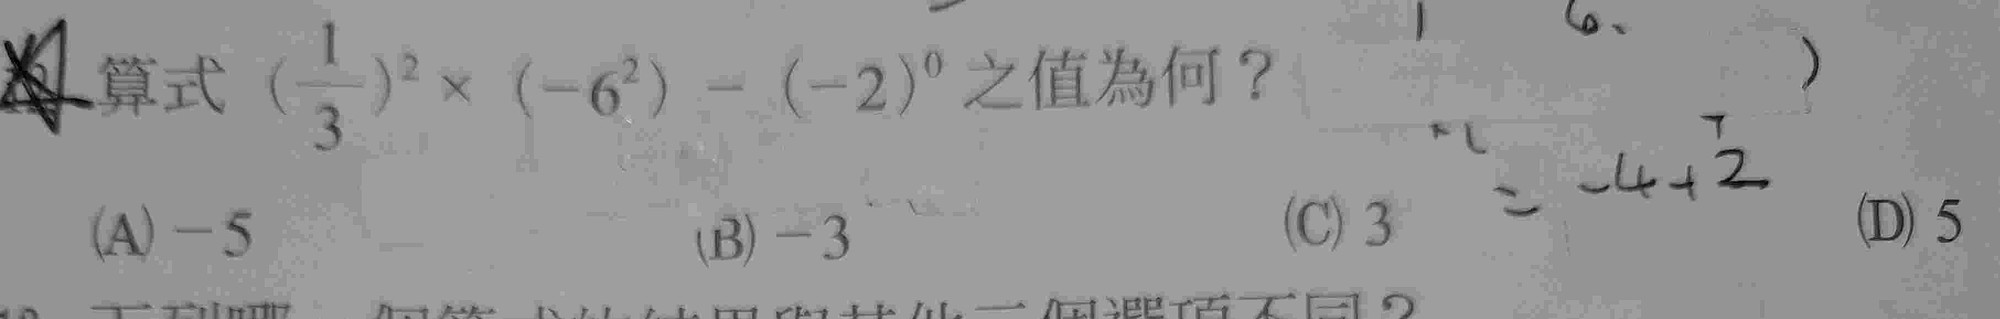 1 6.
算式 (1/3)² × (−6²) − (−2)⁰ 之值為何？
= −4+2
(A) −5 (B) −3 (C) 3 (D) 5